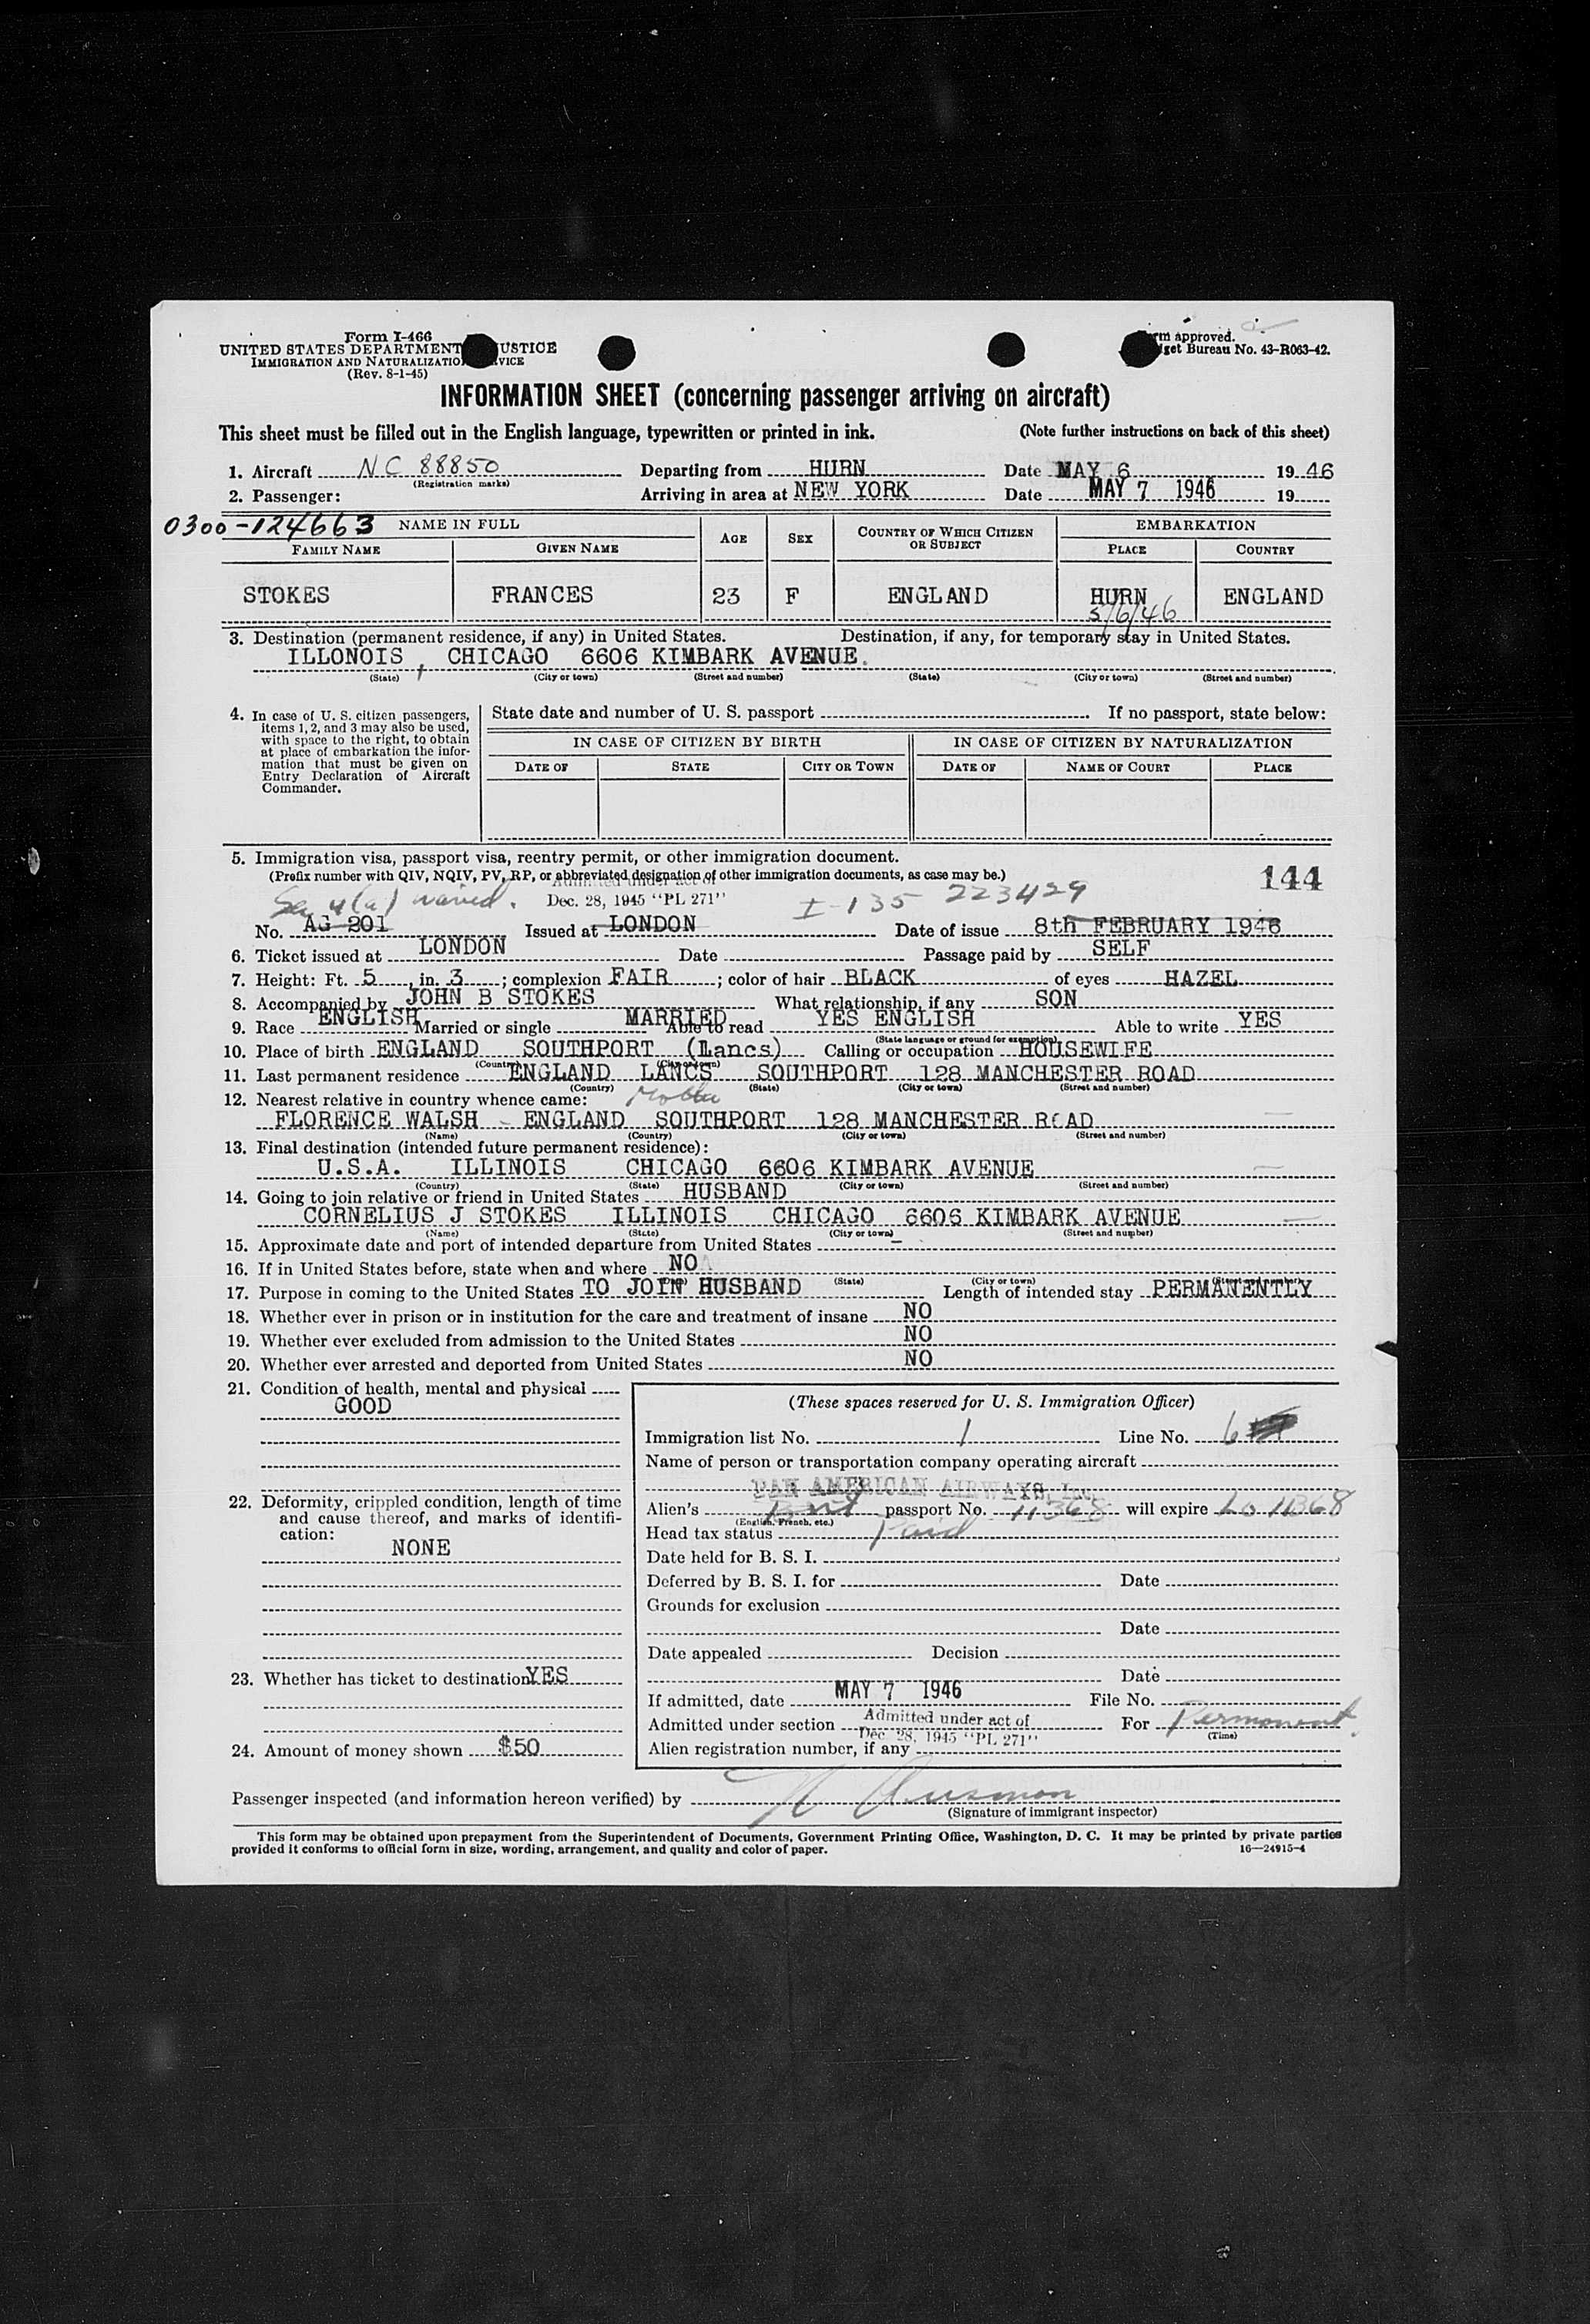 Form I-466
UNITED STATES DEPARTMENT JUSTICE
IMMIGRATION AND NATURALIZATION SERVICE
(Rev. 8-1-45)
approved.
Bureau No. 43-R063-42.
INFORMATION SHEET (concerning passenger arriving on aircraft)
This sheet must be filled out in the English language, typewritten or printed in ink. (Note further instructions on back of this sheet)
1. Aircraft NC 88850 Departing from HURN Date MAY 6 1946
(Registration marks)
2. Passenger: Arriving in area at NEW YORK Date MAY 7 1946 19
0300-124663 NAME IN FULL AGE SEX COUNTRY OF WHICH CITIZEN OR SUBJECT EMBARKATION
FAMILY NAME GIVEN NAME PLACE COUNTRY
STOKES FRANCES 23 F ENGLAND HURN ENGLAND
5/6/46
3. Destination (permanent residence, if any) in United States. Destination, if any, for temporary stay in United States.
ILLONOIS, CHICAGO 6606 KIMBARK AVENUE.
(State) (City or town) (Street and number) (State) (City or town) (Street and number)
4. In case of U. S. citizen passengers, items 1, 2, and 3 may also be used, with space to the right, to obtain at place of embarkation the information that must be given on Entry Declaration of Aircraft Commander.
State date and number of U. S. passport If no passport, state below:
IN CASE OF CITIZEN BY BIRTH IN CASE OF CITIZEN BY NATURALIZATION
DATE OF STATE CITY OR TOWN DATE OF NAME OF COURT PLACE
5. Immigration visa, passport visa, reentry permit, or other immigration document.
(Prefix number with QIV, NQIV, PV, RP, or abbreviated designation of other immigration documents, as case may be.) 144
Admitted under act of
Sec 4(a) waived. Dec. 28, 1945 "PL 271" I-135 223429
No. AG 201 Issued at LONDON Date of issue 8th FEBRUARY 1946
6. Ticket issued at LONDON Date Passage paid by SELF
7. Height: Ft. 5, in. 3; complexion FAIR; color of hair BLACK of eyes HAZEL
8. Accompanied by JOHN B STOKES What relationship, if any SON
9. Race ENGLISH Married or single MARRIED Able to read YES ENGLISH Able to write YES
(State language or ground for exemption)
10. Place of birth ENGLAND SOUTHPORT (Lancs) Calling or occupation HOUSEWIFE
(Country) (City or town)
11. Last permanent residence ENGLAND LANCS SOUTHPORT 128 MANCHESTER ROAD
(Country) (State) (City or town) (Street and number)
12. Nearest relative in country whence came: Mother
FLORENCE WALSH - ENGLAND SOUTHPORT 128 MANCHESTER ROAD
(Name) (Country) (City or town) (Street and number)
13. Final destination (intended future permanent residence):
U.S.A. ILLINOIS CHICAGO 6606 KIMBARK AVENUE
(Country) (State) (City or town) (Street and number)
14. Going to join relative or friend in United States HUSBAND
CORNELIUS J STOKES ILLINOIS CHICAGO 6606 KIMBARK AVENUE
(Name) (State) (City or town) (Street and number)
15. Approximate date and port of intended departure from United States -
16. If in United States before, state when and where NO
(State) (City or town)
17. Purpose in coming to the United States TO JOIN HUSBAND Length of intended stay PERMANENTLY
18. Whether ever in prison or in institution for the care and treatment of insane NO
19. Whether ever excluded from admission to the United States NO
20. Whether ever arrested and deported from United States NO
21. Condition of health, mental and physical
GOOD
22. Deformity, crippled condition, length of time and cause thereof, and marks of identification:
NONE
23. Whether has ticket to destination YES
24. Amount of money shown $50
(These spaces reserved for U. S. Immigration Officer)
Immigration list No. 1 Line No. 6
Name of person or transportation company operating aircraft
PAN AMERICAN AIRWAYS, Inc.
Alien's Brit passport No. 11368 will expire 11368
(English, French, etc.)
Head tax status Paid
Date held for B. S. I.
Deferred by B. S. I. for Date
Grounds for exclusion
Date
Date appealed Decision
Date
If admitted, date MAY 7 1946 File No.
Admitted under section Admitted under act of Dec. 28, 1945 "PL 271" For Permanent.
(Time)
Alien registration number, if any
Passenger inspected (and information hereon verified) by
(Signature of immigrant inspector)
This form may be obtained upon prepayment from the Superintendent of Documents, Government Printing Office, Washington, D. C. It may be printed by private parties
provided it conforms to official form in size, wording, arrangement, and quality and color of paper. 16—24915-4